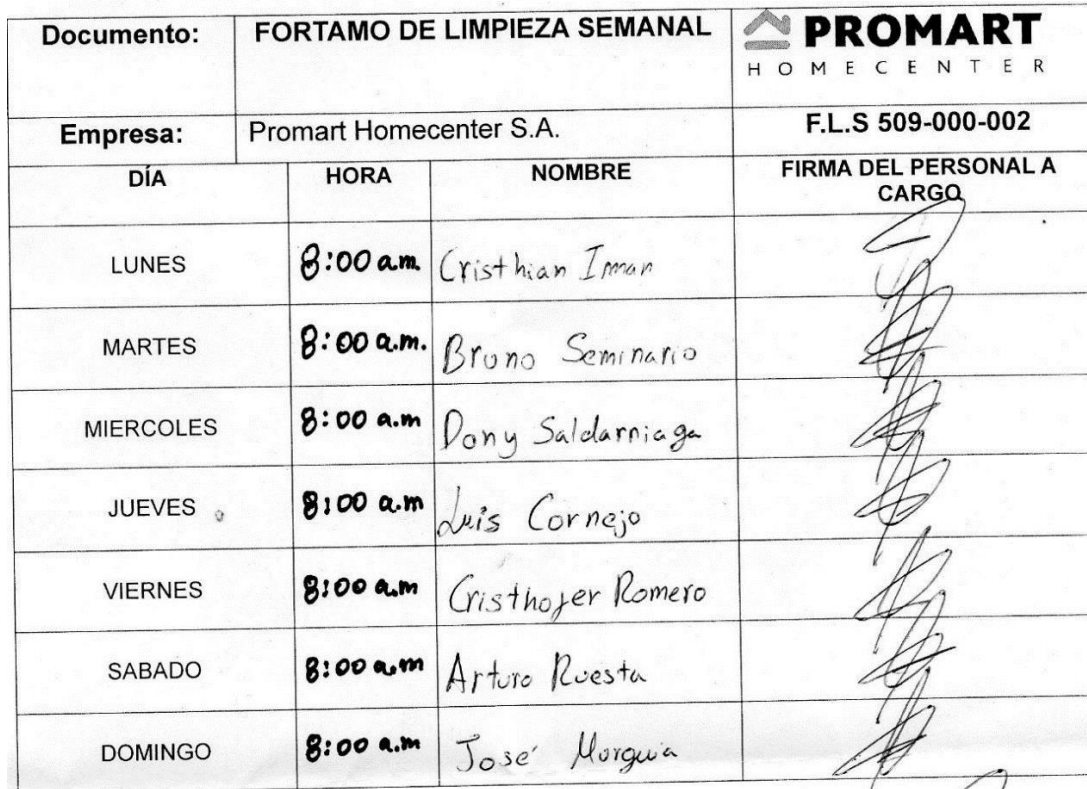 Documento: FORTAMO DE LIMPIEZA SEMANAL PROMART
HOMECENTER
Empresa: Promart Homecenter S.A. F.L.S 509-000-002
DÍA HORA NOMBRE FIRMA DEL PERSONAL A
CARGO
LUNES 8:00 a.m. Cristhian Iman
MARTES 8:00 a.m. Bruno Seminario
MIERCOLES 8:00 a.m Dony Saldarriaga
JUEVES 8:00 a.m Luis Cornejo
VIERNES 8:00 a.m Cristhofer Romero
SABADO 8:00 a.m Arturo Ruesta
DOMINGO 8:00 a.m José Morguia